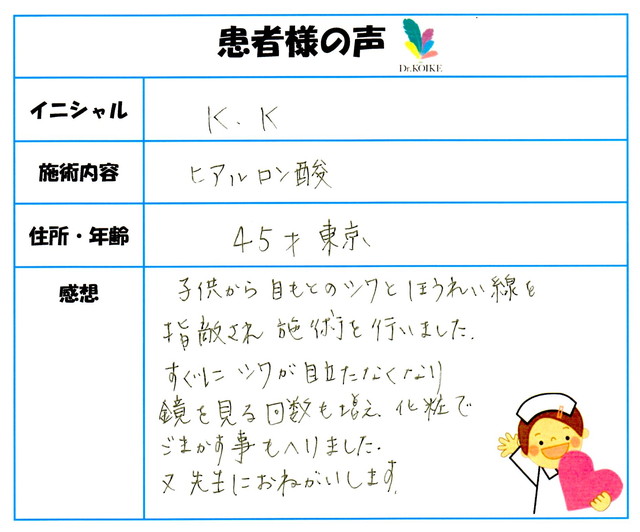 患者様の声
Dr.KOIKE
イニシャル
K. K
施術内容
ヒアルロン酸
住所・年齢
45才 東京
感想
子供から目もとのシワとほうれい線を
指敵され 施術を行いました。
すぐにシワが目立たなくなり
鏡を見る回数も増え、化粧で
ごまかす事もへりました。
又 先生におねがいします。